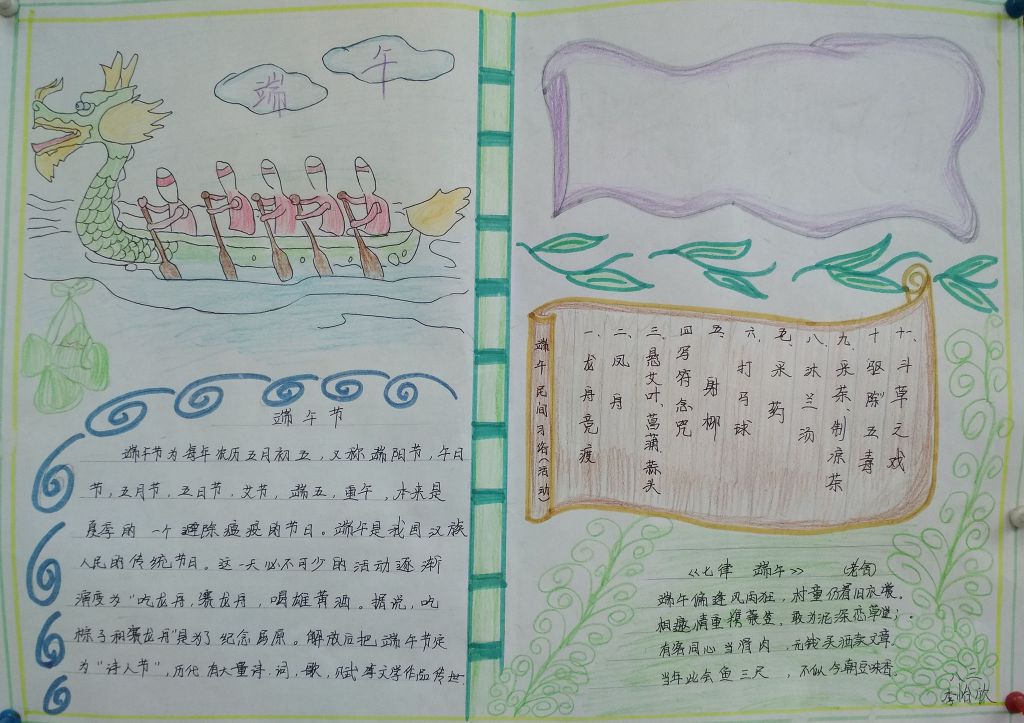 端午
端午节
端午节为每年农历五月初五，又称端阳节，午日
节，五月节，五日节，艾节，端五，重午，本来是
夏季的一个避除瘟疫的节日。端午是我国汉族
人民的传统节日。这一天必不可少的活动逐渐
演度为“吃龙舟，赛龙舟，喝雄黄酒。据说，吃
粽子和赛龙舟”是为了纪念屈原。解放后把端午节定
为“诗人节”，历代有大量诗，词，歌，赋等文学作品传世.
端午民间习俗(活动)
一、龙舟竞渡
二、凤舟
三、悬艾叶、菖蒲、蒜头
四、写符念咒
五、射柳
六、打马球
七、采药
八、沐兰汤
九、采茶、制凉茶
十、驱除五毒
十一、斗草之戏
《七律 端午》 (老舍)
端午偏逢风雨狂，村童仍着旧衣裳。
相邀情重携蓑笠，敢为泥深恋草堂；
有客同心当骨肉，无钱买酒卖文章。
当年此会鱼三尺，不似今朝豆味香。
八二
李怡欣